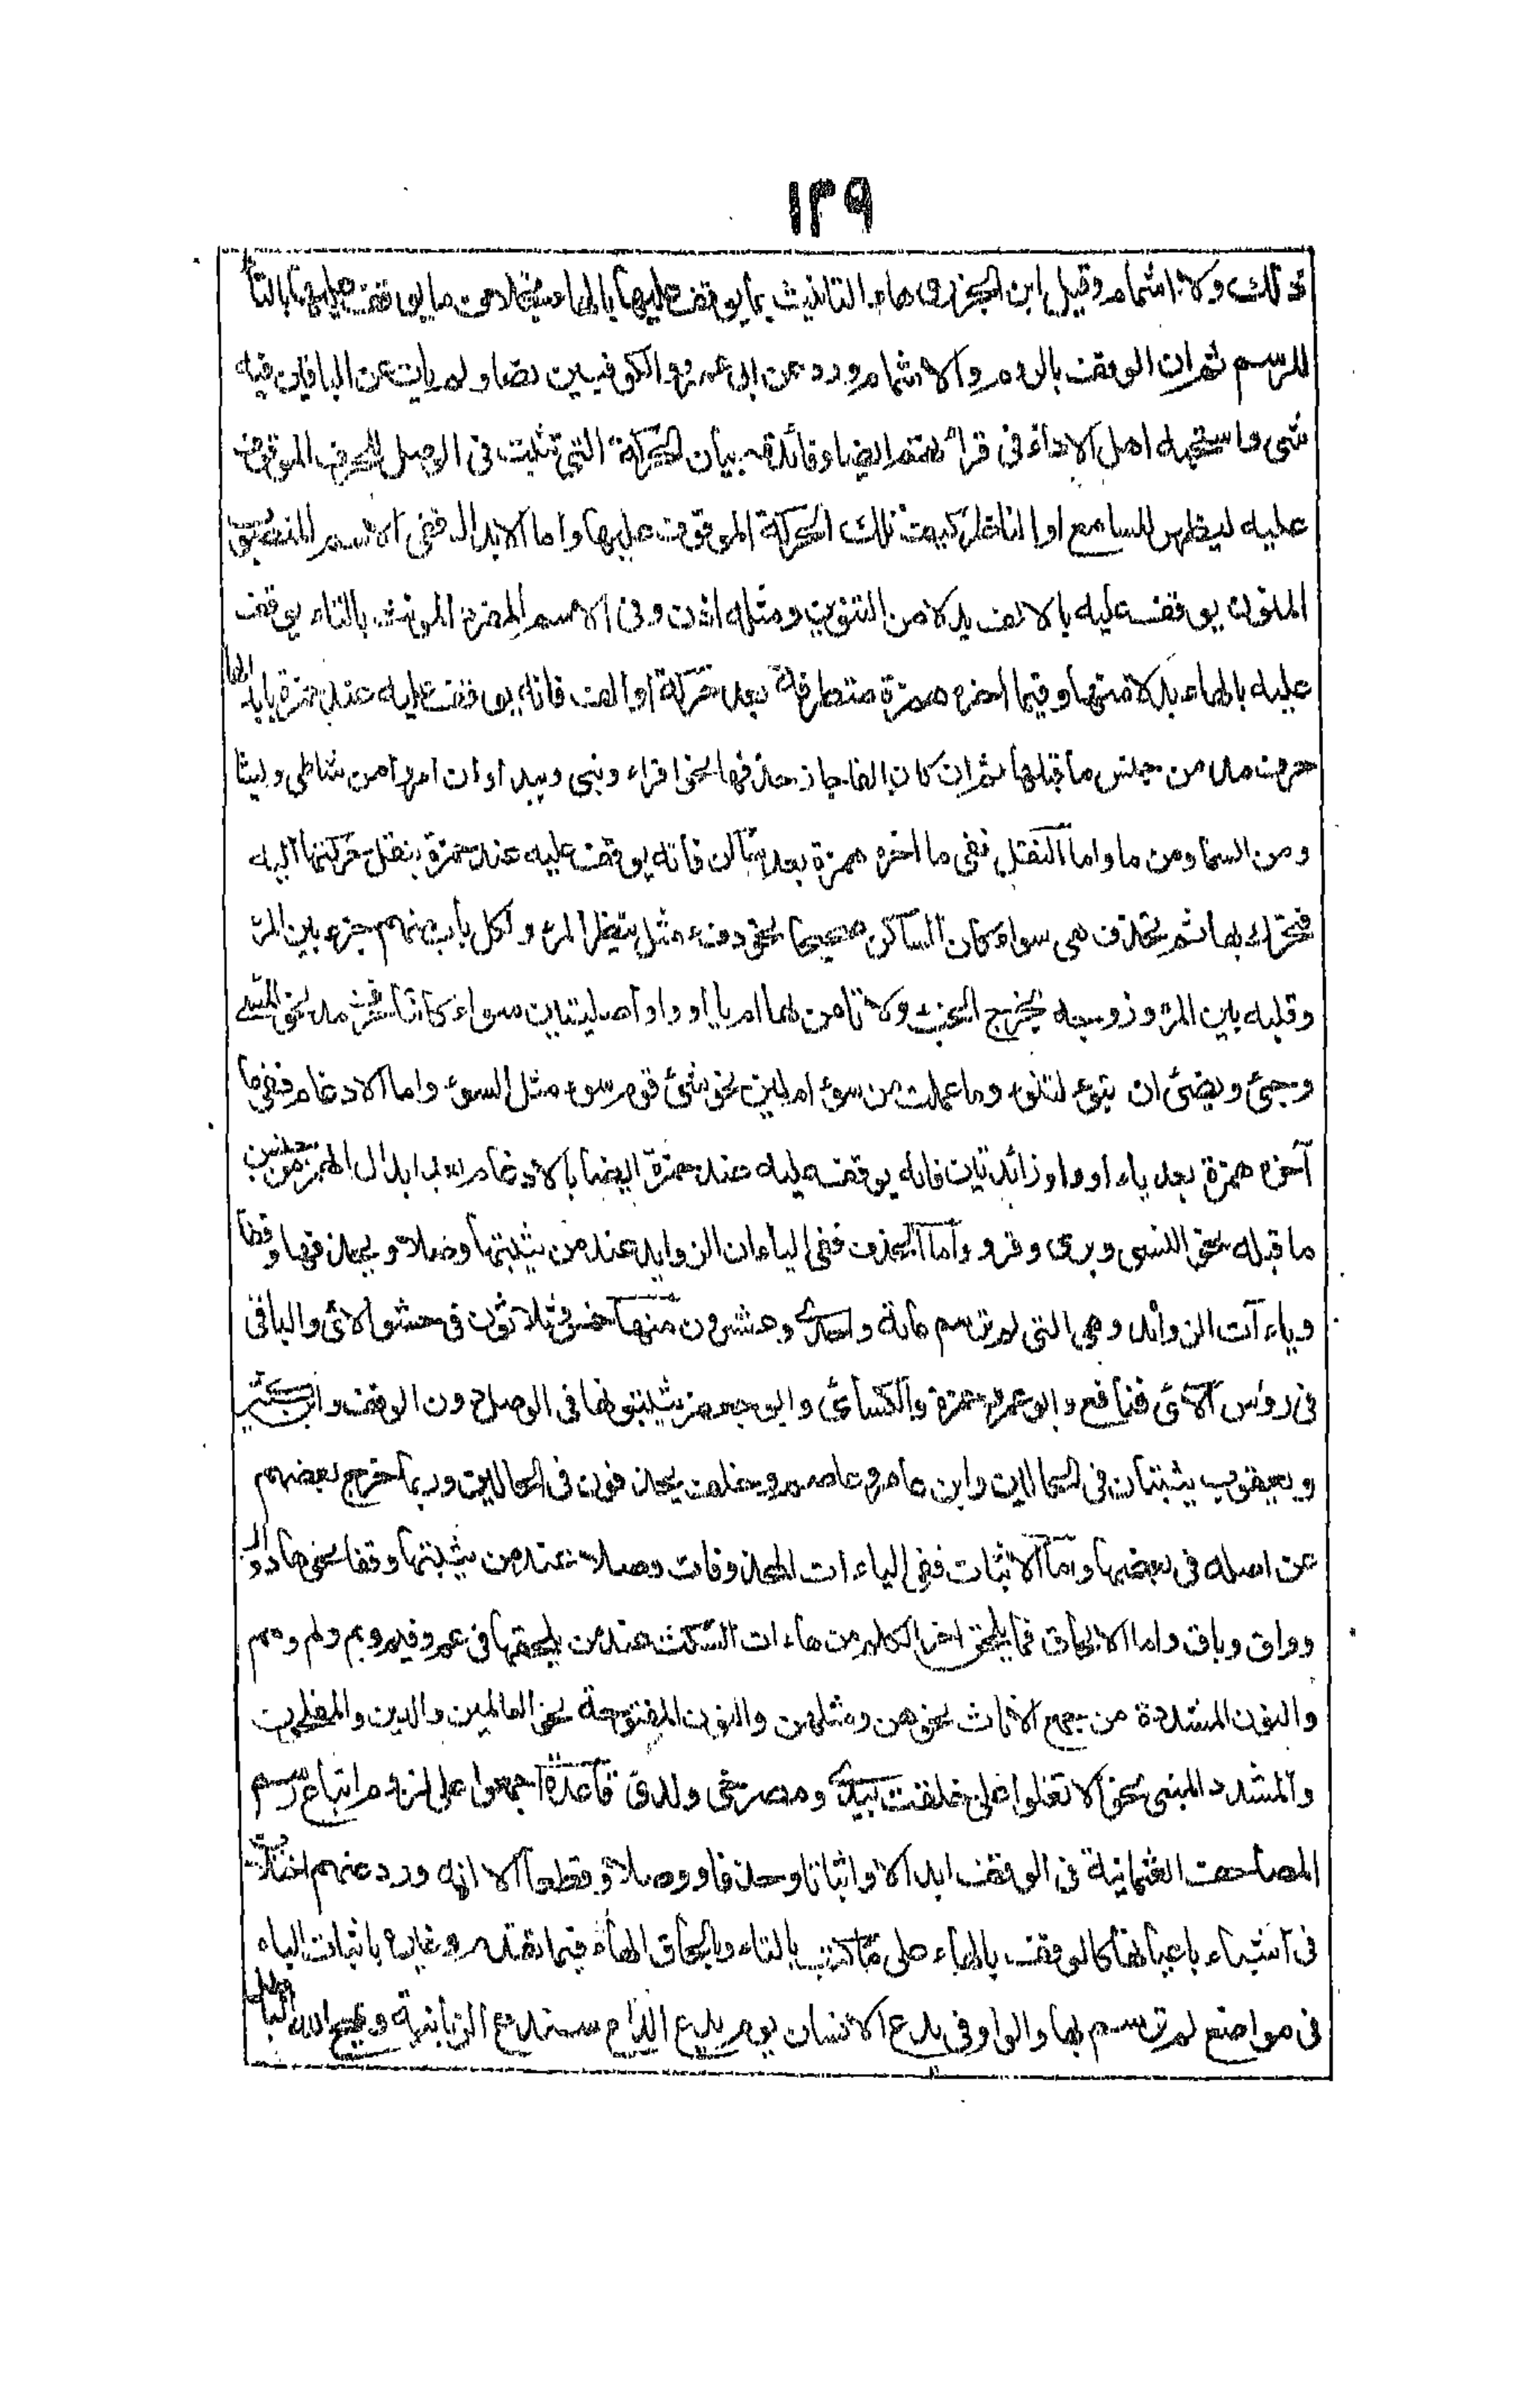 ١٣٩
ذلك ولا اشمام وقيل ابن الجزرى هاء التانيث بما يوقف عليها بالهاء محملا من ما يوقف عليها بالتاء
للرسم ثم ان الوقف بالروم والاشمام ورد عن ابى عمرو والكوفيين نصا ولم يات عن الباقين فيه
شى واستحبه اهل الاداء فى قرأتهم ايضا وفائدته بيان الحركة التى تثبت فى الوصل للحرف الموقوف
عليه ليظهر للسامع او الناظر كيف تلك الحركة الموقوف عليها واما الابدال ففى الاسم المنصوب
المنون يوقف عليه بالالف بدلا من التنوين ومثله اذن وفى الاسم المفرد المونث بالتاء يوقف
عليه بالهاء بدلا منها وفيما اخره همزة متطرفة بعد حركة او الف فانه يوقف عليه عند حمزة بابدالها
حرف مد من جنس ما قبلها ثم ان كان الفا جاز حذفها نحو اقراء ونبى ويبدا وان امرا من شاطى ويشا
ومن السما ومن ما واما النقل ففى ما اخره همزة بعد ساكن فانه يوقف عليه عند حمزة بنقل حركتها اليه
فتحرك بها ثم تحذف هى سواء كان الساكن صحيحا نحو دفء مثل ينظر المرء ولكل باب منهم جزء بين المرء
وقلبه بين المرء وزوجه يخرج الخبء ولا ثامن لهما ام يا او واو اصليتين سواء كانتا حرف مد نحو المسئ
وجئ ويضئ ان تبوء لتنوء وما عملت من سوء ام لين نحو شئ قوم سوء مثل السوء واما الادغام ففى ما
آخره همزة بعد ياء او واو زائدتين فانه يوقف عليه عند حمزة ايضا بالادغام بعد ابدال الهمز من جنس
ما قبله نحو النسى وبرى وقرو واما الحذف ففى الياءات الزوايد عند من يثبتها وصلا ويحذفها وقفا
وياءآت الزوائد وهى التى لم ترسم مائة واحدى وعشرون منها خمس وثلاثون فى حشو الائ والباقى
فى رؤس الآئ فنافع وابو عمرو وحمزة والكسائى وابو جعفر يثبتونها فى الوصل دون الوقف وابن كثير
ويعقوب يثبتان فى الحالين وابن عامر وعاصم وخلف يحذفون فى الحالين وربما خرج بعضهم
عن اصله فى بعضها واما الاثبات ففى الياءات المحذوفات وصلا عند من يثبتها وقفا نحو هاد ووال
وواق وباق واما الالحاق فما يلحق اخر الكلم من هاءات السكت عند من يلحقها فى عم وفيم وبم ولم ومم
والنون المشددة من جمع الاناث نحو هن ومثلهن والنون المفتوحة نحو العالمين والدين والمفلحون
والمشدد المبنى نحو الا تعلوا على خلقت بيدى ومصرخى ولدى قاعدة اجمعوا على لزوم اتباع رسم
المصاحف العثمانية فى الوقف ابدالا واثباتا وحذفا ووصلا وقطعا الا انه ورد عنهم اختلاف
فى اشياء باعيانها كالوقف بالهاء على ما كتب بالتاء وبالحاق الهاء فيما تقدم وغيره باثبات الياء
فى مواضع لم ترسم بها والواو فى يدع الانسان يوم يدع الداع سندع الزبانية ويمح الله الباطل